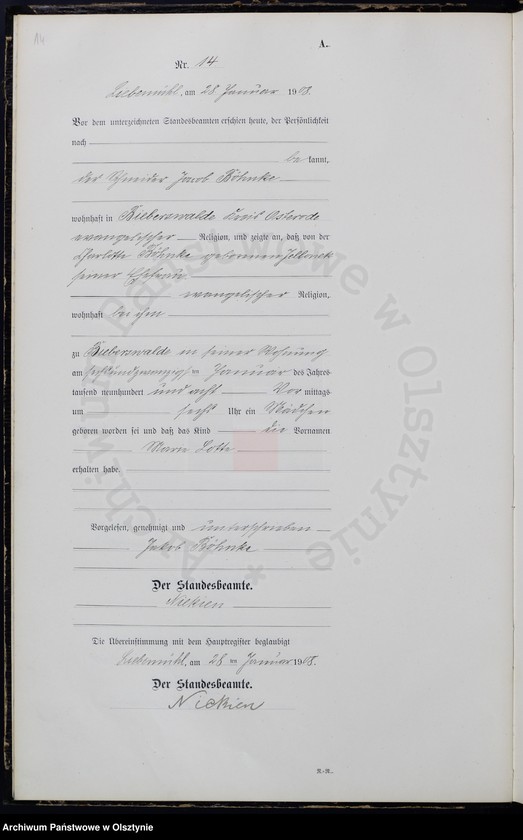 14
A.
Nr. 14
Liebemühl, am 28. Januar 1908.
Vor dem unterzeichneten Standesbeamten erschien heute, der Persönlichkeit
nach
be kannt,
der Schneider Jacob Böhnke
wohnhaft in Bieberswalde Kreis Osterode
evangelischer Religion, und zeigte an, daß von der
Charlotte Böhnke geborenen
seiner Ehefrau
evangelischer Religion,
wohnhaft bei ihm
zu Bieberswalde in seiner Wohnung
am sechsundzwanzigsten Januar des Jahres
tausend neunhundert und acht Vor mittags
um sechs Uhr ein Mädchen
geboren worden sei und daß das Kind die Vornamen
Marie Lotte
erhalten habe.
Vorgelesen, genehmigt und unterschrieben
Jakob Böhnke
Der Standesbeamte.
Nickien
Die Übereinstimmung mit dem Hauptregister beglaubigt
Liebemühl, am 28 ten Januar 1908.
Der Standesbeamte.
Nickien
R.-R.
Archiwum Państwowe w Olsztynie *
Archiwum Państwowe w Olsztynie